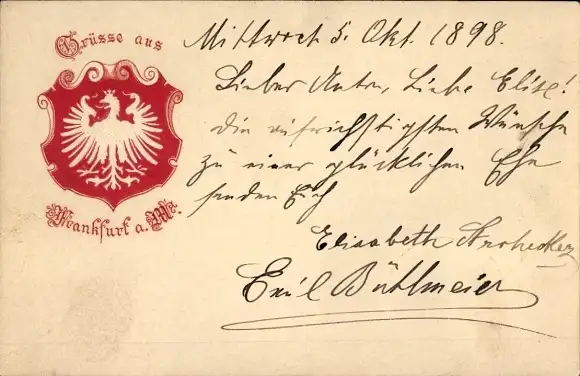 Grüsse aus
Frankfurt a. M.
Mittwoch 5. Okt. 1898.
Lieber Anton, Liebe Elise!
die aufrichtigsten Wünsche
zu einer glücklichen Ehe
senden Euch
Elisabeth
Emil Bühlmeier